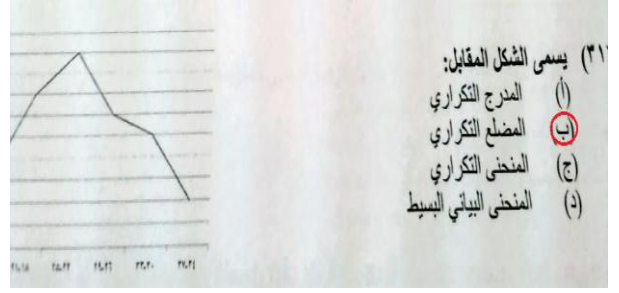 ٣١) يسمى الشكل المقابل:
(أ) المدرج التكراري
(ب) المضلع التكراري
(ج) المنحنى التكراري
(د) المنحنى البياني البسيط